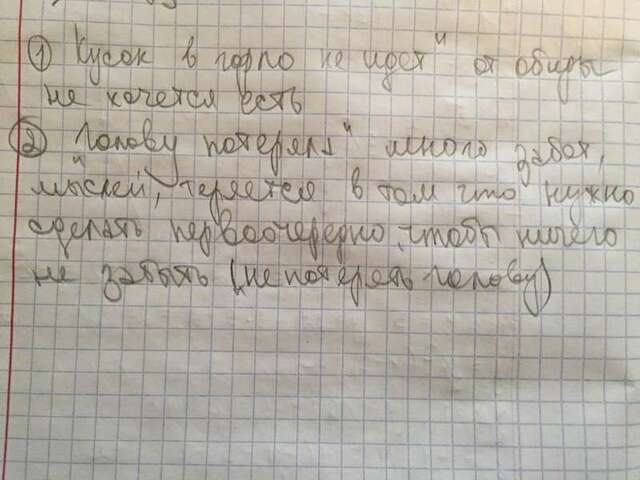 ① "Кусок в горло не идет" от обиды
не хочется есть
② "Голову потерял" много забот,
мыслей, теряется в том что нужно
сделать первоочередно, чтобы ничего
не забыть (не потерять голову)